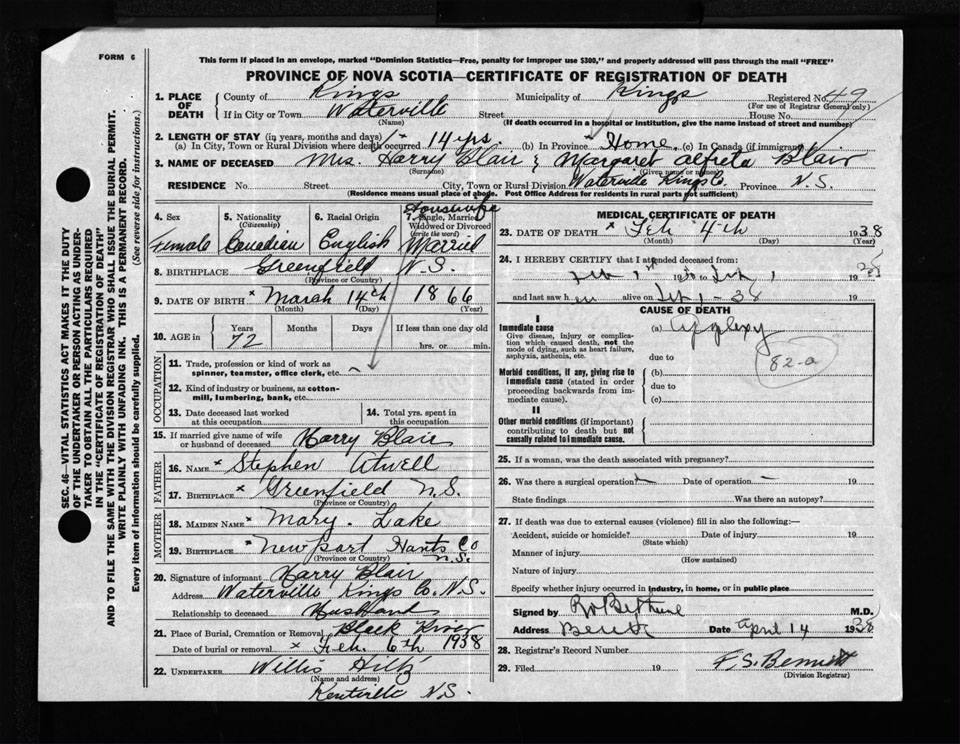 FORM 6
This form if placed in an envelope, marked "Dominion Statistics—Free, penalty for improper use $300," and properly addressed will pass through the mail "FREE"
PROVINCE OF NOVA SCOTIA—CERTIFICATE OF REGISTRATION OF DEATH
SEC. 46—VITAL STATISTICS ACT MAKES IT THE DUTY
OF THE UNDERTAKER OR PERSON ACTING AS UNDER-
TAKER TO OBTAIN ALL THE PARTICULARS REQUIRED
IN THE "CERTIFICATE OF REGISTRATION OF DEATH"
AND TO FILE THE SAME WITH THE DIVISION REGISTRAR WHO SHALL ISSUE THE BURIAL PERMIT.
WRITE PLAINLY WITH UNFADING INK. THIS IS A PERMANENT RECORD.
Every item of information should be carefully supplied. (See reverse side for instructions.)
1. PLACE OF DEATH County of Kings Municipality of Kings Registered No. 49
(For use of Registrar General only)
If in City or Town Waterville Street House No.
(Name) (If death occurred in a hospital or institution, give the name instead of street and number)
2. LENGTH OF STAY (in years, months and days)
(a) In City, Town or Rural Division where death occurred 14 yrs. (b) In Province Home (c) In Canada (if immigrant)
3. NAME OF DECEASED Mrs. Harry Blair Margaret Alfreta Blair
(Surname) (Given name or names)
RESIDENCE No. Street City, Town or Rural Division Waterville Kings Co. Province N.S.
(Residence means usual place of abode. Post Office Address for residents in rural parts not sufficient)
4. Sex Female
5. Nationality (Citizenship) Canadian
6. Racial Origin English
7. Single, Married Widowed or Divorced (write the word) Housewife Married
8. BIRTHPLACE Greenfield N.S.
(Province or Country)
9. DATE OF BIRTH March 14th 1866
(Month) (Day) (Year)
10. AGE in Years 72 Months Days If less than one day old hrs. or min.
OCCUPATION
11. Trade, profession or kind of work as spinner, teamster, office clerk, etc.
12. Kind of industry or business, as cotton-mill, lumbering, bank, etc.
13. Date deceased last worked at this occupation
14. Total yrs. spent in this occupation
15. If married give name of wife or husband of deceased Harry Blair
FATHER
16. NAME Stephen Atwell
17. BIRTHPLACE Greenfield N.S.
(Province or Country)
MOTHER
18. MAIDEN NAME Mary Lake
19. BIRTHPLACE Newport Hants Co N.S.
(Province or Country)
20. Signature of informant Harry Blair
Address Waterville Kings Co. N.S.
Relationship to deceased Husband
21. Place of Burial, Cremation or Removal Black River
Date of burial or removal Feb. 6th 1938
22. UNDERTAKER Willis Hiltz
(Name and address)
Kentville N.S.
MEDICAL CERTIFICATE OF DEATH
23. DATE OF DEATH Feb 4th 1938
(Month) (Day) (Year)
24. I HEREBY CERTIFY that I attended deceased from:
and last saw her alive on 19
CAUSE OF DEATH
I
Immediate cause (a) Apoplexy
Give disease, injury or complication which caused death, not the mode of dying, such as heart failure, asphyxia, asthenia, etc.
due to
82-a
Morbid conditions, if any, giving rise to immediate cause (stated in order proceeding backwards from immediate cause).
(b)
due to
(c)
II
Other morbid conditions (if important) contributing to death but not causally related to immediate cause.
25. If a woman, was the death associated with pregnancy?
26. Was there a surgical operation Date of operation 19
State findings Was there an autopsy?
27. If death was due to external causes (violence) fill in also the following:—
Accident, suicide or homicide? Date of injury 19
(State which)
Manner of injury
(How sustained)
Nature of injury
Specify whether injury occurred in industry, in home, or in public place
Signed by M.D.
Address Date April 14 1938
28. Registrar's Record Number
29. Filed 19 F.S. Bennett
(Division Registrar)